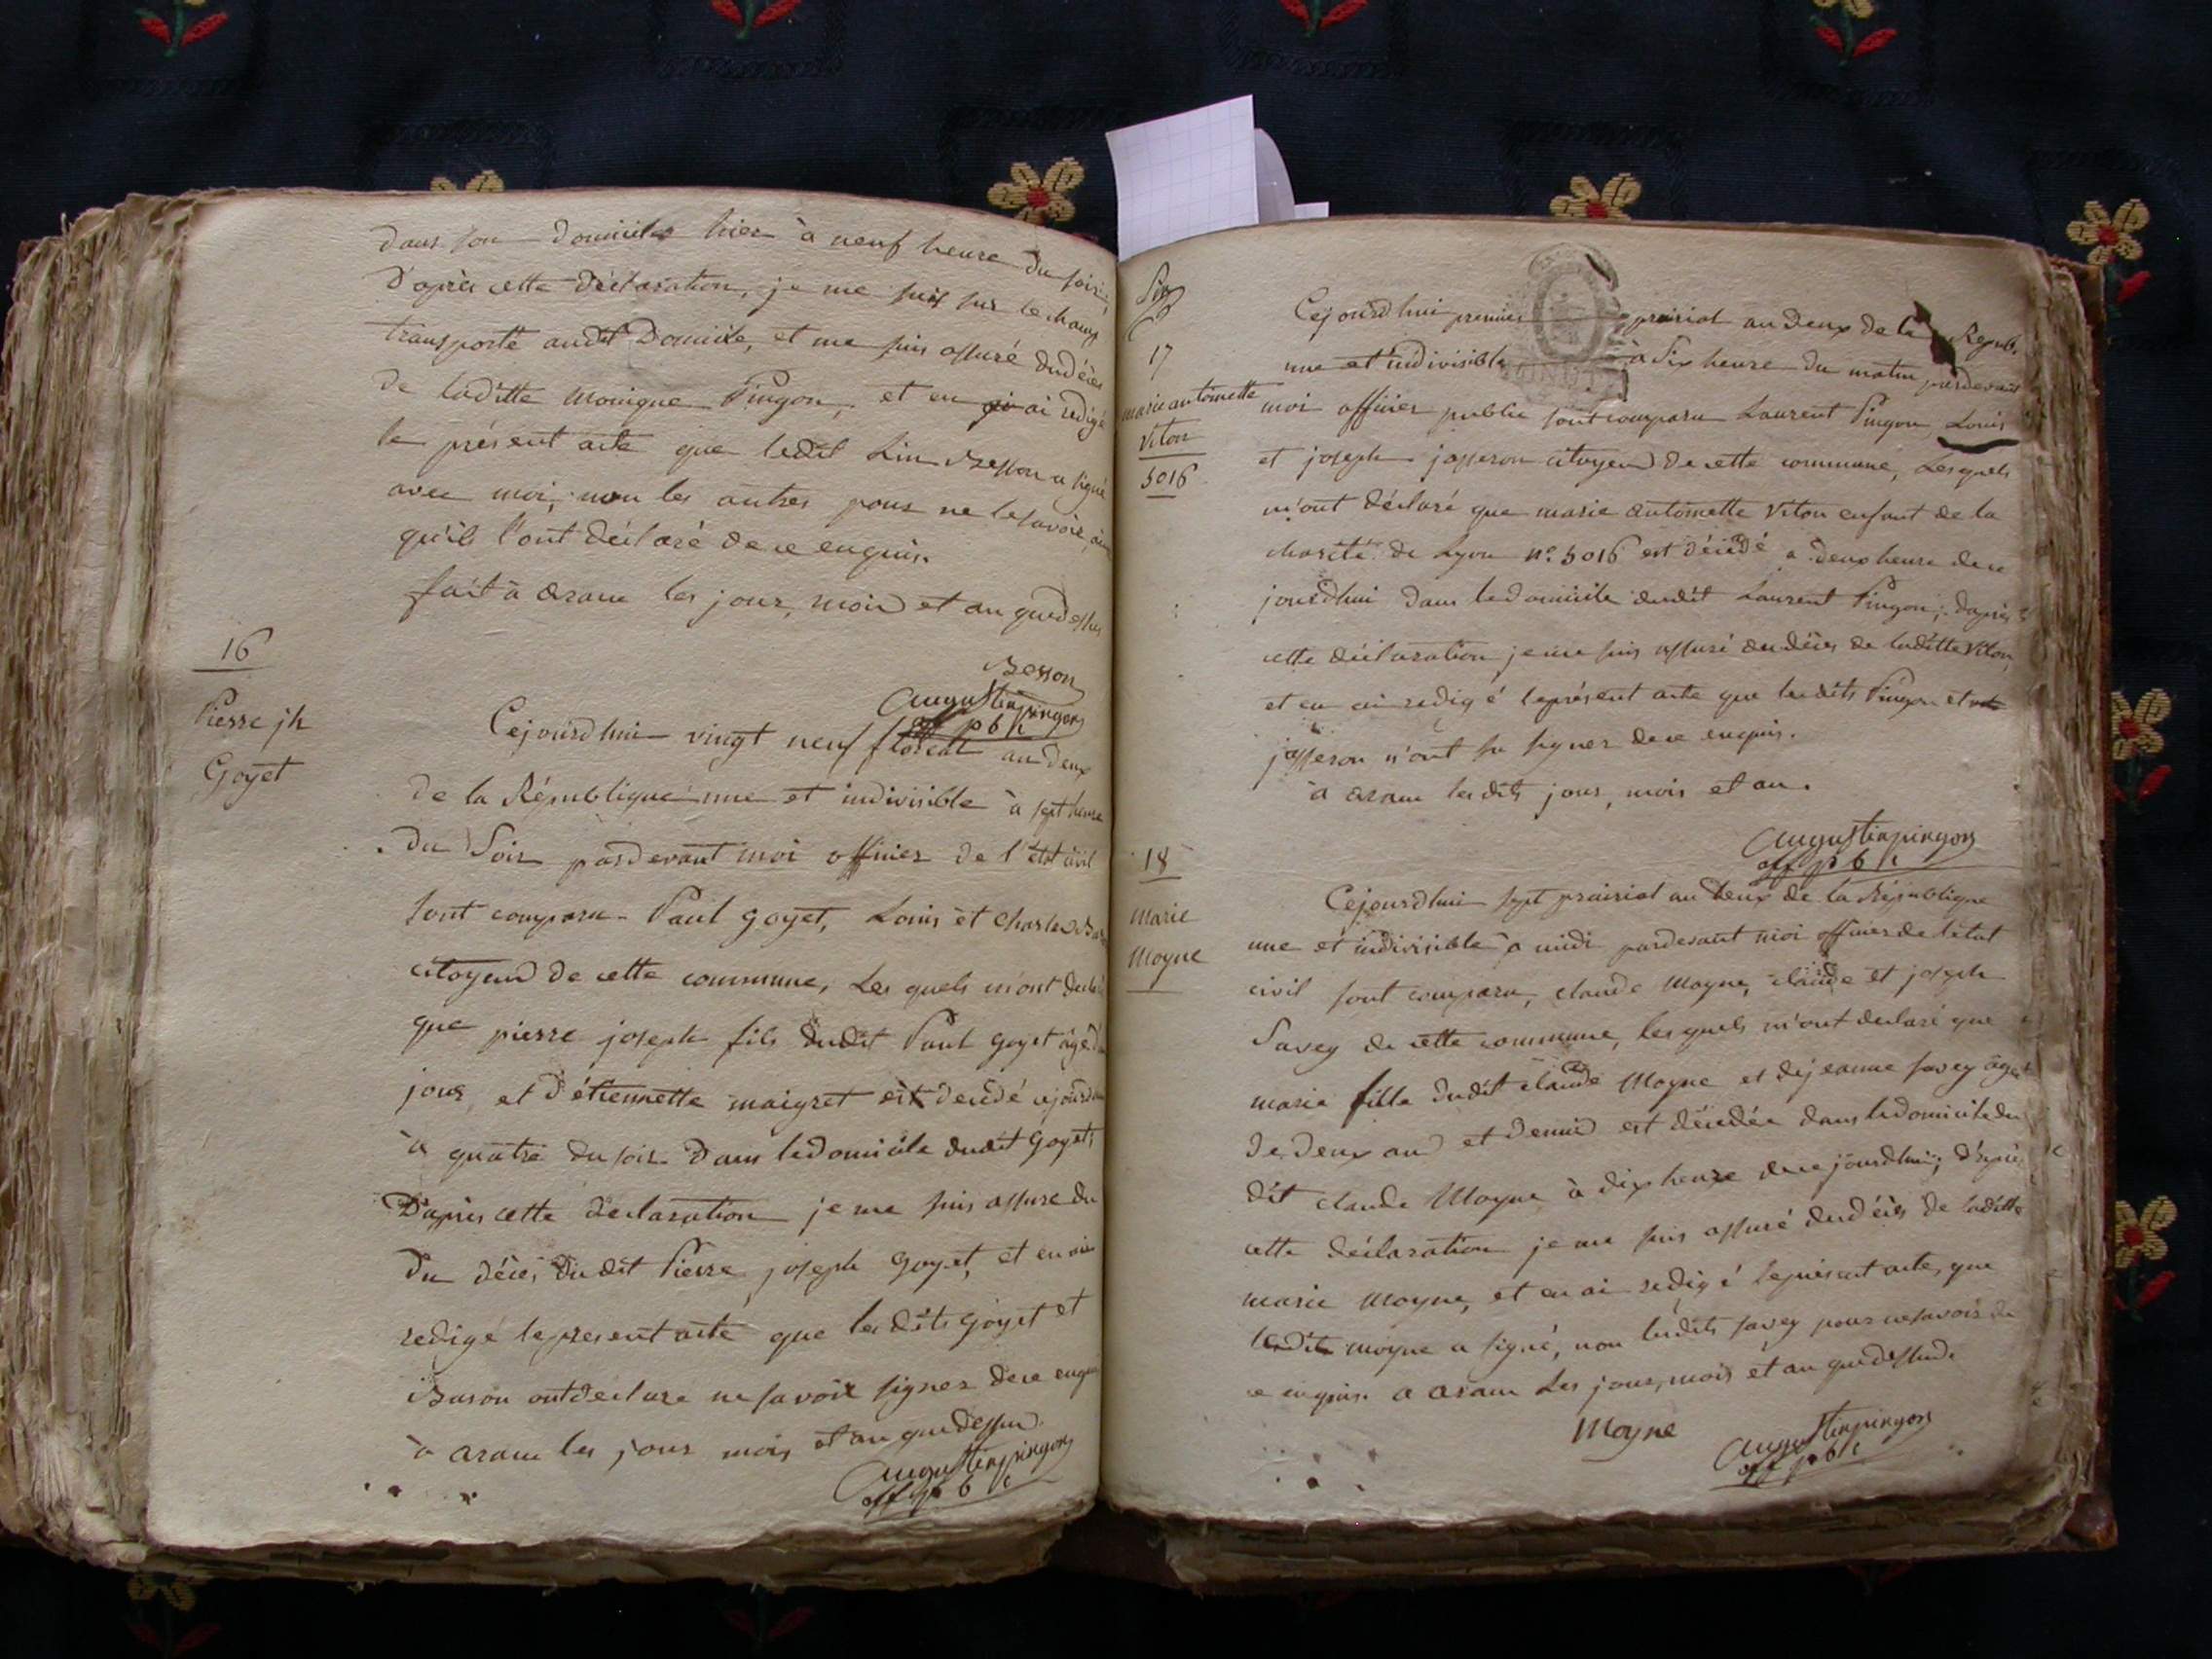 dans son domicile hier à neuf heure du soir;
D'après cette déclaration, je me suis sur le champ
transporté audit Domicile, et me suis assuré dudécès
de laditte Monique Pingon, et en ai redigé
le présent acte que ledit Besson a signé
avec moi, non les autres pour ne lesavoir,
qu'ils l'ont déclaré de ce enquis.
fait à aranc les jour, mois et an quedessus
Besson
augustinpingon
off pblc
16
Pierre jh
Goyet
Cejourdhui vingt neuf floreal an deux
de la République une et indivisible à sept heure
du Soir pardevant moi officier de l'état civil
sont comparu Paul goyet, Louis et Charles
citoyens de cette commune, Les quels m'ont declaré
que pierre joseph fils dudit Paul goyet âgé
jour, et d'étiennette maigret est décédé
à quatre du soir Dans ledomicile dudit goyet;
D'après cette déclaration je me suis assuré du
du décès dudit Pierre joseph goyet, et en ai
redigé lepresent acte que lesdits goyet et
Buson ontdeclare ne savoir signer dece enquis
à aranc les jour mois et an quedessus
augustinpingon
off pblc
17
marie antoinette
Viton
5016
Cejourdhui premier prairial an Deux de la Repub.
une et indivisible à Six heure du matin pardevant
moi officier public sont comparu Laurent Pingon, Louis
et joseph josseron citoyens de cette commune, Lesquels
m'ont déclaré que marie antoinette Viton enfant de la
charité de Lyon n° 5016 est décédé a deux heure de ce
jourdhui dans ledomicile dudit Laurent Pingon; daprès
cette déclaration jeme suis assuré dudécès de laditte Viton,
et en ai redigé leprésent acte que lesdits Pingon et
josseron n'ont su signer dece enquis.
à aranc lesdits jour, mois et an.
augustinpingon
off pblc
18
Marie
Moyne
Cejourdhui sept prairial an deux de la République
une et indivisible à midi pardevant moi officier de l'état
civil sont comparu, claude Moyne, claude et joseph
Savey de cette commune, lesquels m'ont declaré que
marie fille dudit claude Moyne et dejeanne savey âgée
de deux ans et demie est décédée dans ledomicile du
dit claude Moyne à dix heure dece jourdhui; D'après
cette déclaration je me suis assuré dudécès de laditte
marie Moyne, et en ai redigé leprésent acte, que
ledit moyne a signé, non lesdits savey pour nesavoir de
ce enquis. a aranc Les jour, mois et an quedessus.
Moyne
augustinpingon
off pblc